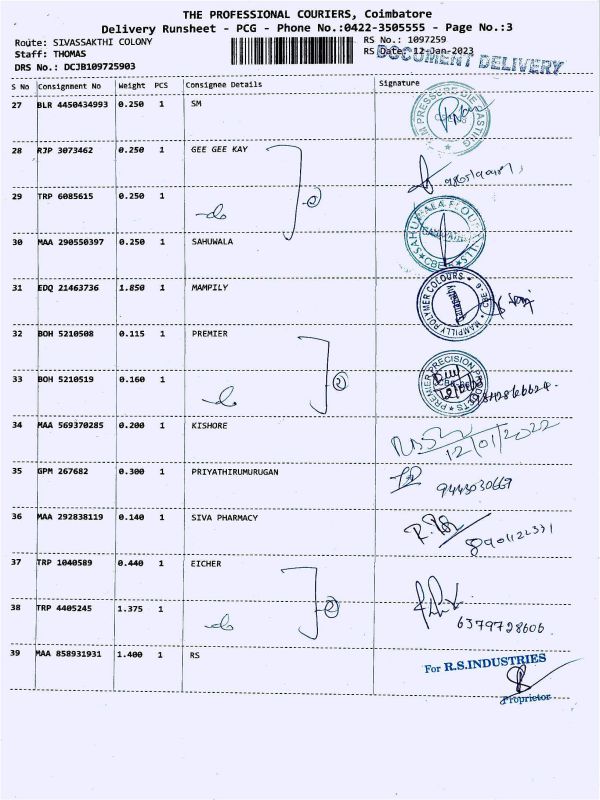 THE PROFESSIONAL COURIERS, Coimbatore
Delivery Runsheet - PCG - Phone No.:0422-3505555 - Page No.:3
Route: SIVASSAKTHI COLONY
RS No.: 1097259
Staff: THOMAS
RS Date: 12-Jan-2023
DOCUMENT DELIVERY
DRS No.: DCJB109725903
S No Consignment No Weight PCS Consignee Details Signature
27 BLR 4450434993 0.250 1 SM
28 RJP 3073462 0.250 1 GEE GEE KAY
29 TRP 6085615 0.250 1 do 2
30 MAA 290550397 0.250 1 SAHUWALA
31 EDQ 21463736 1.850 1 MAMPILY
MAMPILLY POLYMER COLOURS
32 BOH 5210508 0.115 1 PREMIER
33 BOH 5210519 0.160 1 do 2
PREMIER PRECISION PRODUCTS
34 MAA 569370285 0.200 1 KISHORE
12/01/2022
35 GPM 267682 0.300 1 PRIYATHIRUMURUGAN
9443030669
36 MAA 292838119 0.140 1 SIVA PHARMACY
37 TRP 1040589 0.440 1 EICHER
38 TRP 4405245 1.375 1 do 2
6379728606
39 MAA 858931931 1.400 1 RS
For R.S.INDUSTRIES
Proprietor